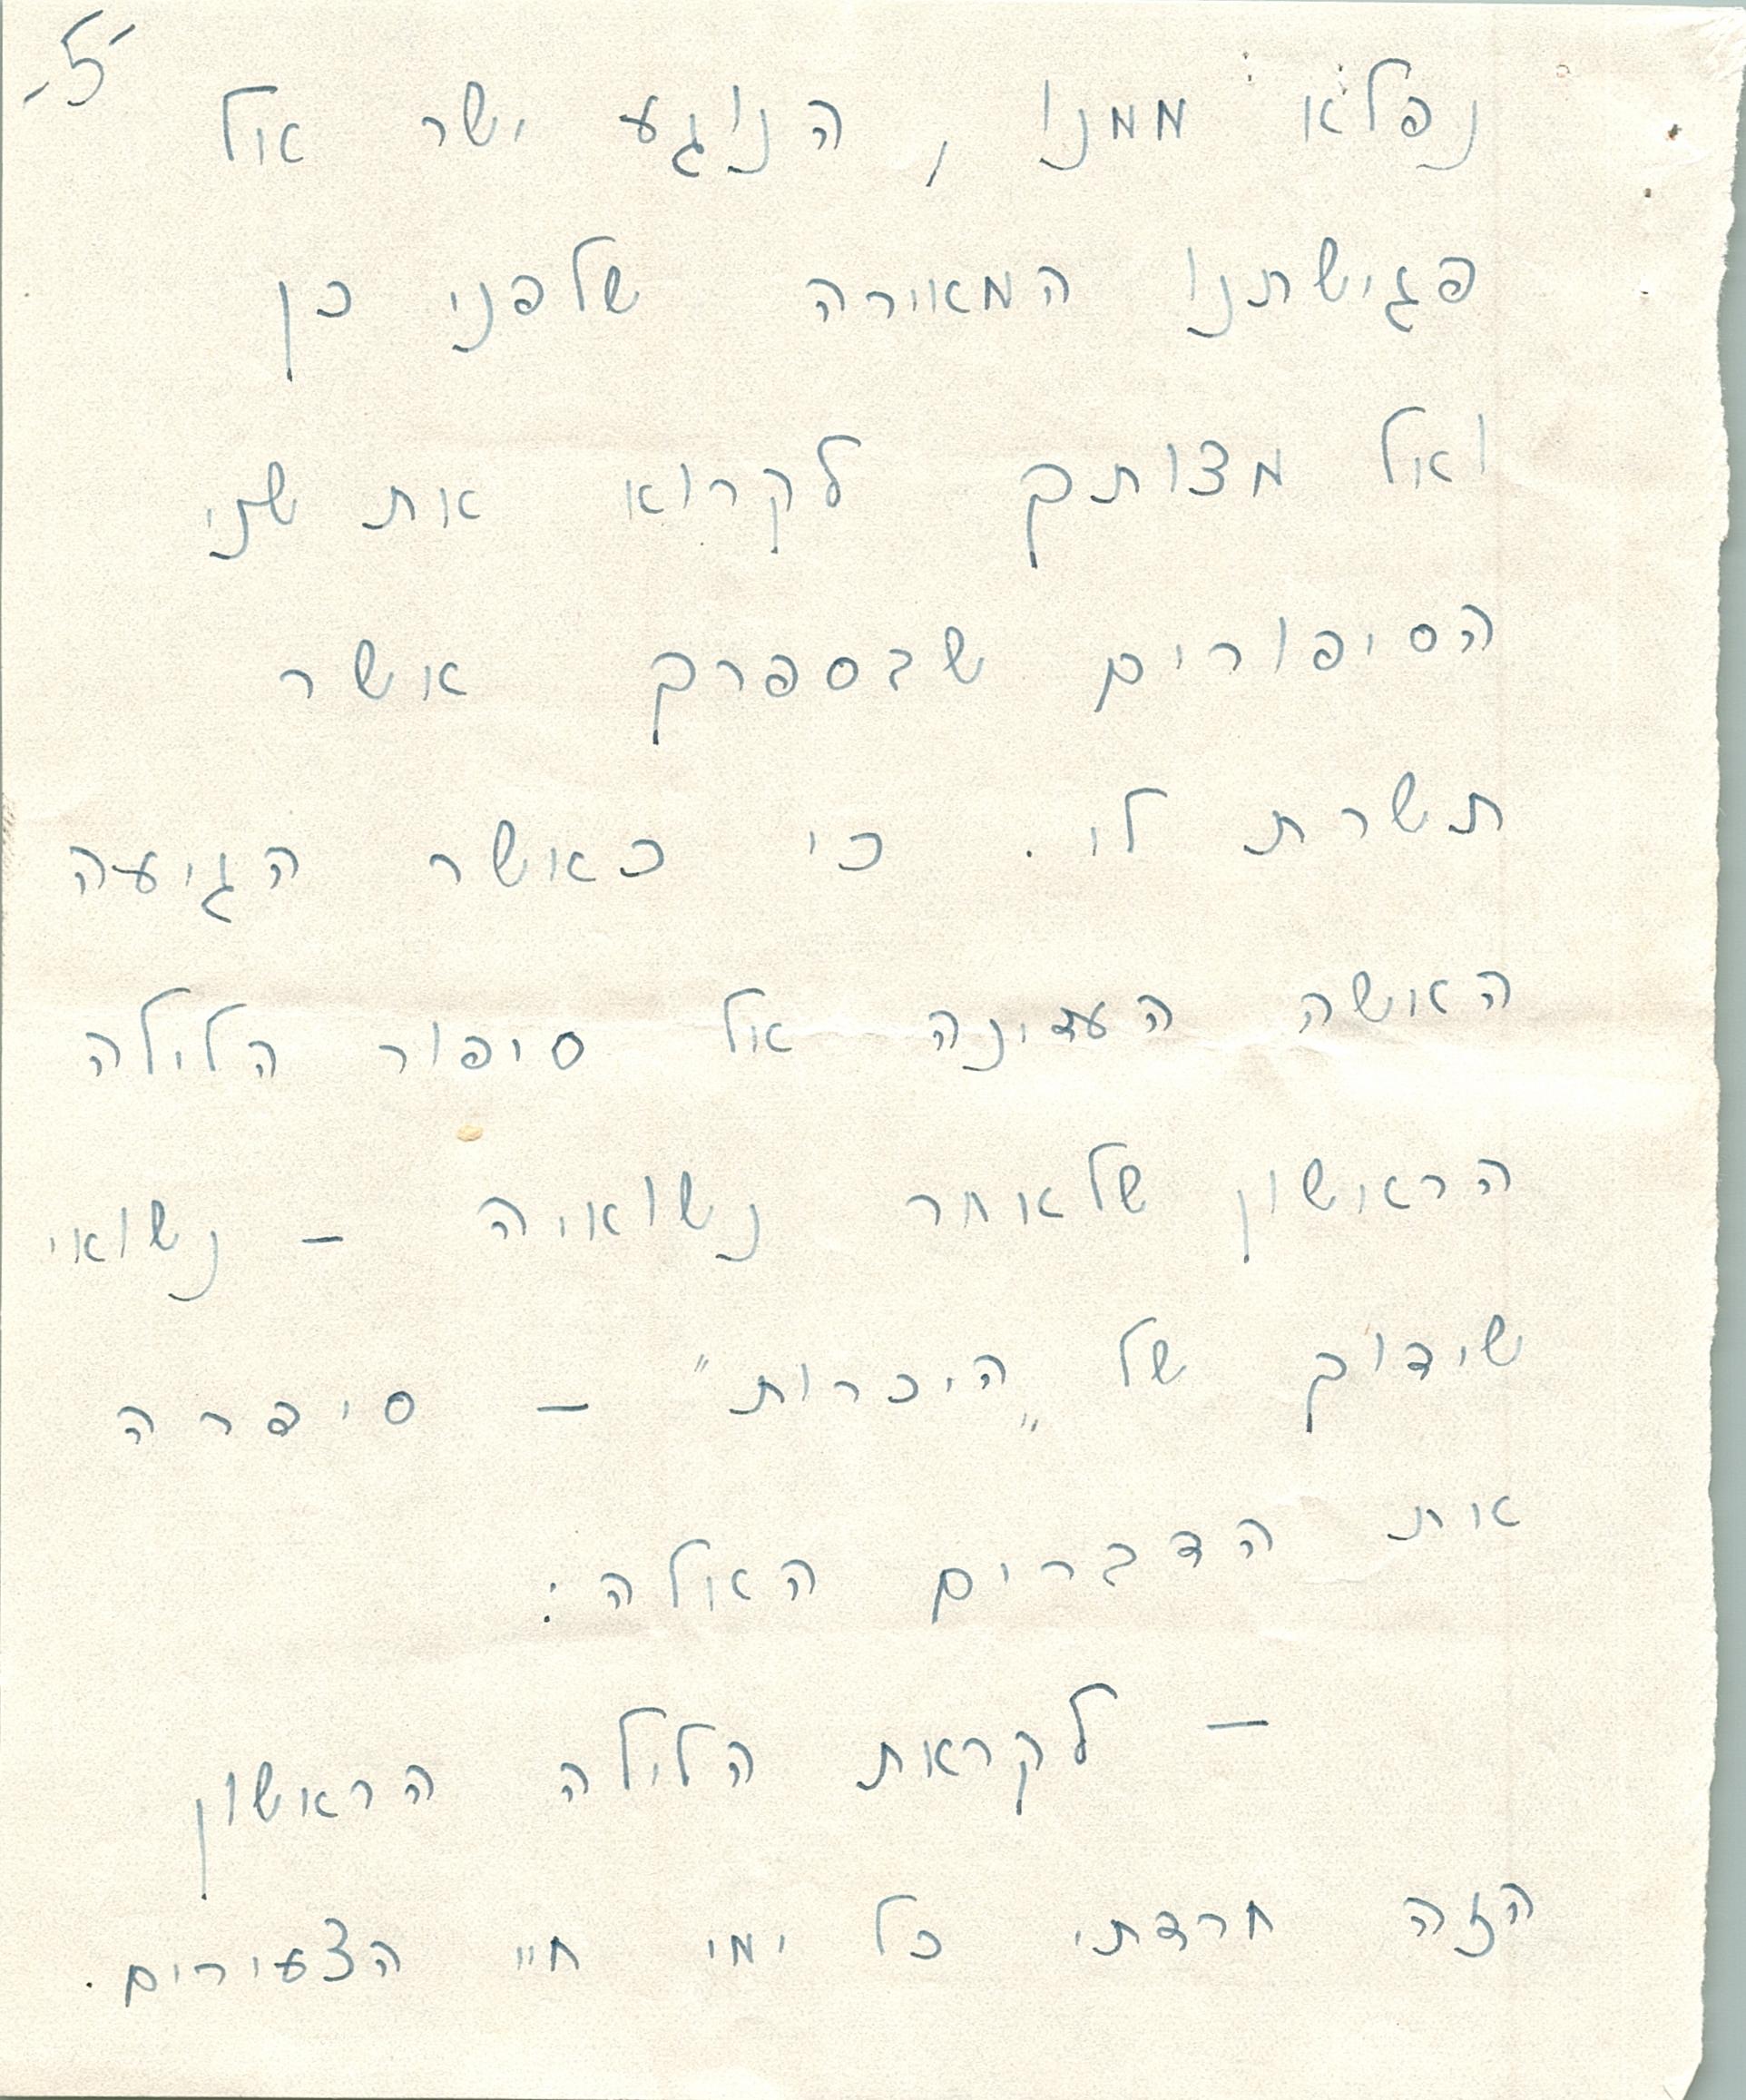 -5-
נפלא ממנו, הנוגע ישר אל
פגישתנו המאירה שלפני כן
ואל מצותך לקרוא את שני
הסיפורים שבספרך אשר
תשרת לי. כי כאשר הגיעה
האשה העדינה אל סיפור הלילה
הראשון שלאחר נשואיה – נשואי
שידוך של „היכרות" – סיפרה
את הדברים האלה:
– לקראת הלילה הראשון
הזה חרדתי כל ימי חיי הצעירים.